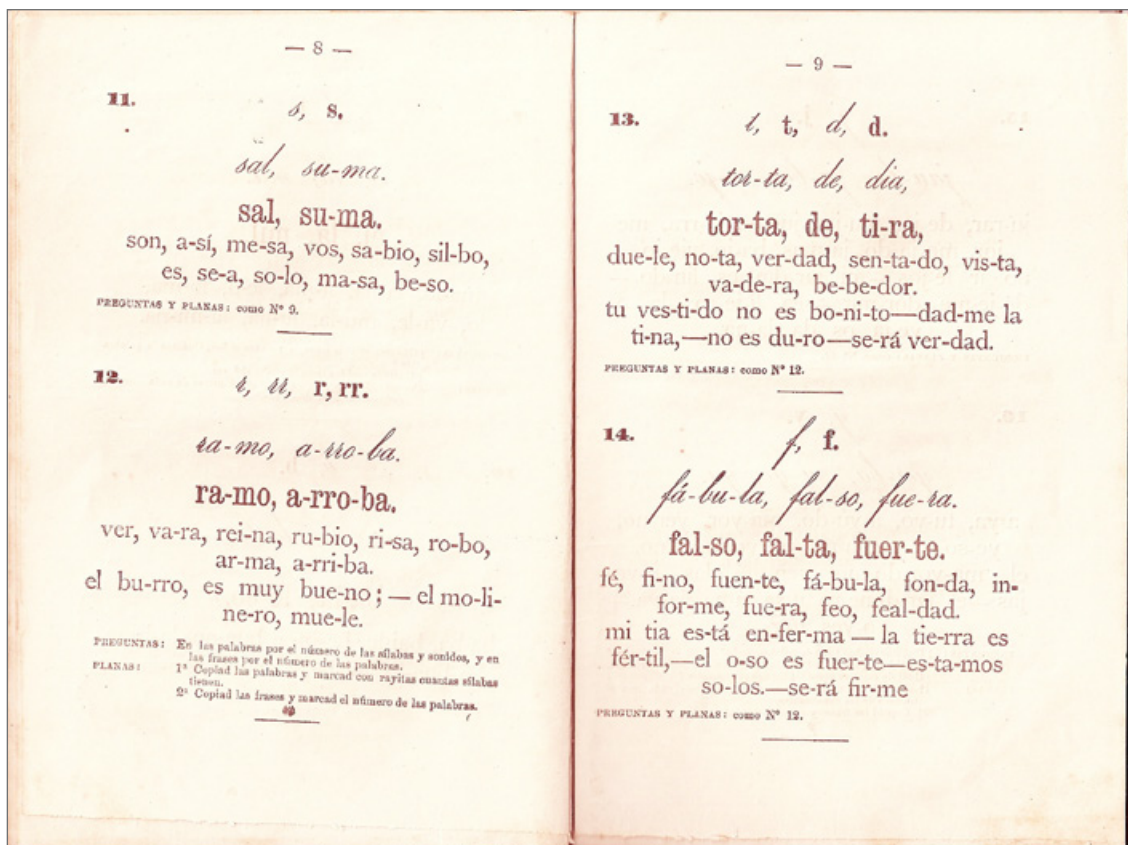 — 8 —
11.
s, s.
sal, su-ma.
sal, su-ma.
son, a-sí, me-sa, vos, sa-bio, sil-bo,
es, se-a, so-lo, ma-sa, be-so.
PREGUNTAS Y PLANAS: como Nº 9.
12.
r, rr, r, rr.
ra-mo, a-rro-ba.
ra-mo, a-rro-ba.
ver, va-ra, rei-na, ru-bio, ri-sa, ro-bo,
ar-ma, a-rri-ba.
el bu-rro, es muy bue-no; — el mo-li-
ne-ro, mue-le.
PREGUNTAS: En las palabras por el número de las sílabas y sonidos, y en
las frases por el número de las palabras.
PLANAS: 1ª Copiad las palabras y marcad con rayitas cuantas sílabas
tienen.
2ª Copiad las frases y marcad el número de las palabras.
— 9 —
13.
t, t, d, d.
tor-ta, de, dia,
tor-ta, de, ti-ra,
due-le, no-ta, ver-dad, sen-ta-do, vis-ta,
va-de-ra, be-be-dor.
tu ves-ti-do no es bo-ni-to—dad-me la
ti-na,—no es du-ro—se-rá ver-dad.
PREGUNTAS Y PLANAS: como Nº 12.
14.
f, f.
fá-bu-la, fal-so, fue-ra.
fal-so, fal-ta, fuer-te.
fé, fi-no, fuen-te, fá-bu-la, fon-da, in-
for-me, fue-ra, feo, feal-dad.
mi tia es-tá en-fer-ma — la tie-rra es
fér-til,—el o-so es fuer-te—es-ta-mos
so-los.—se-rá fir-me
PREGUNTAS Y PLANAS: como Nº 12.